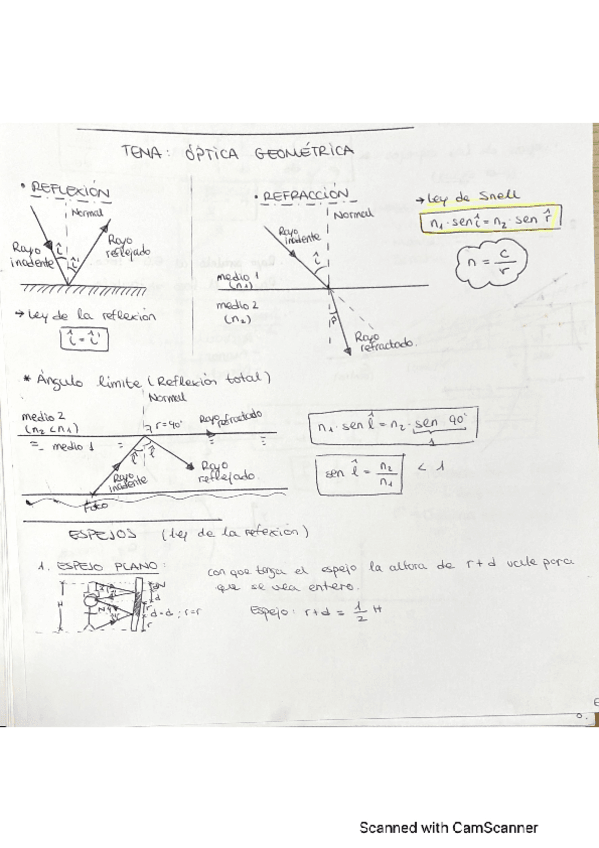 TEMA: ÓPTICA GEOMÉTRICA
• REFLEXIÓN
Normal
Rayo incidente
î
î'
Rayo reflejado
→ Ley de la reflexión
î = î'
• REFRACCIÓN
Normal
Rayo incidente
î
medio 1
(n₁)
medio 2
(n₂)
r̂
Rayo refractado.
→ Ley de Snell
n₁ · sen î = n₂ · sen r̂
n = c/r
* Ángulo límite (Reflexión total)
Normal
medio 2
(n₂ < n₁)
r = 90°
Rayo refractado
medio 1
Rayo incidente
Rayo reflejado
Foco
n₁ · sen l̂ = n₂ · sen 90°
1
sen l̂ = n₂/n₁ < 1
ESPEJOS (Ley de la reflexión)
1. ESPEJO PLANO:
con que tenga el espejo la altura de r+d vale para
que se vea entero.
H
d = d ; r = r
r
Espejo: r+d = 1/2 H
Scanned with CamScanner